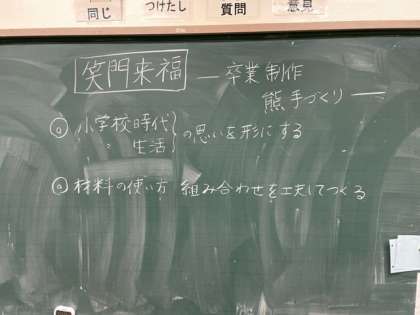 同じ つけたし 質問 意見
笑門来福 ― 卒業制作
熊手づくり ―
◎ 小学校時代 の思いを形にする
〃 生活
◎ 材料の使い方 組み合わせを工夫してつくる